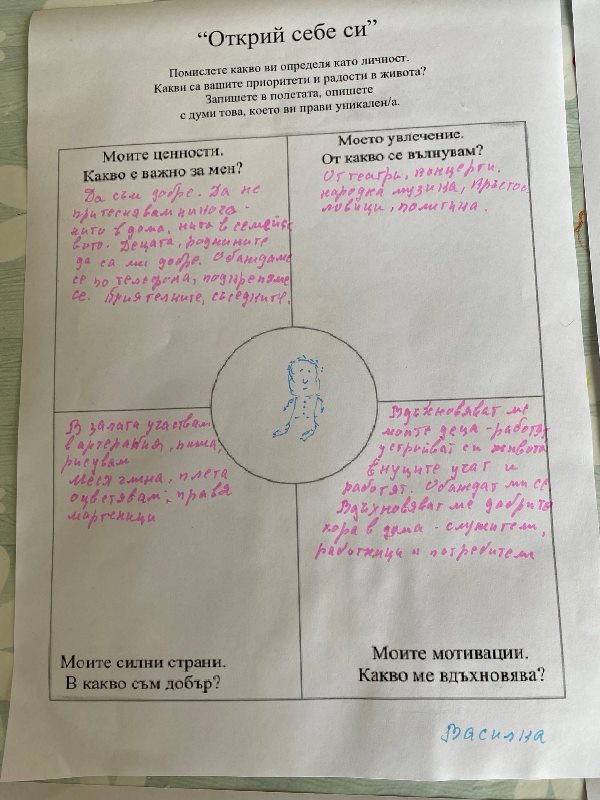 “Открий себе си”
Помислете какво ви определя като личност.
Какви са вашите приоритети и радости в живота?
Запишете в полетата, опишете
с думи това, което ви прави уникален/а.
Моите ценности.
Какво е важно за мен?
Да съм добре. Да не
притеснявам никога -
нито в дома, нито в семейс
вото. Децата, роднините
да са ми добре. Обаждаме
се по телефона, подкрепяме
се. Приятелките, съседките.
Моето увлечение.
От какво се вълнувам?
От театри, концерти.
народна музика, кръстос
ловици, политика.
В залата участвам
в артерапия, пиша,
рисувам
меся глина, плета
оцветявам, правя
мартеници
Моите силни страни.
В какво съм добър?
Вдъхновяват ме
моите деца - работят
устройват си живота
внуците учат и
работят. Обаждат ми се
Вдъхновяват ме добрите
хора в дома - служители,
работници и потребители
Моите мотивации.
Какво ме вдъхновява?
Василка